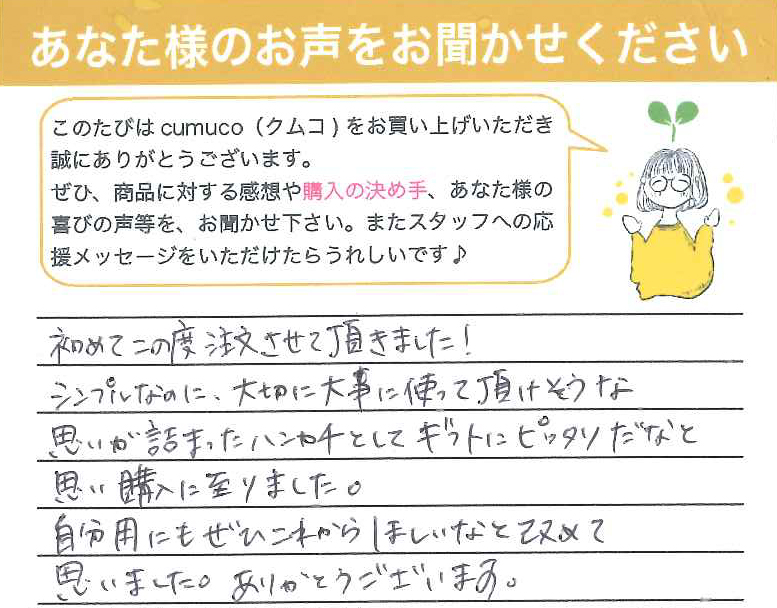 あなた様のお声をお聞かせください
このたびは cumuco（クムコ）をお買い上げいただき
誠にありがとうございます。
ぜひ、商品に対する感想や購入の決め手、あなた様の
喜びの声等を、お聞かせ下さい。またスタッフへの応
援メッセージをいただけたらうれしいです♪
初めてこの度注文させて頂きました！
シンプルなのに、大切に大事に使って頂けそうな
思いが詰まったハンカチとしてギフトにピッタリだなと
思い購入に至りました。
自分用にもぜひこれからほしいなと改めて
思いました。ありがとうございます。